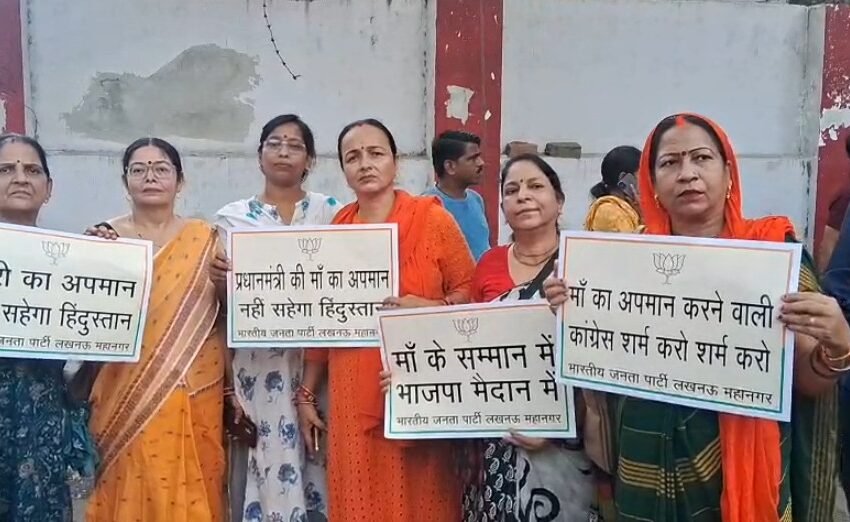 का अपमान
सहेगा हिंदुस्तान
जनता पार्टी लखनऊ महानगर
प्रधानमंत्री की माँ का अपमान
नहीं सहेगा हिंदुस्तान
भारतीय जनता पार्टी लखनऊ महानगर
माँ के सम्मान में
भाजपा मैदान में
भारतीय जनता पार्टी लखनऊ महानगर
माँ का अपमान करने वाली
कांग्रेस शर्म करो शर्म करो
भारतीय जनता पार्टी लखनऊ महानगर